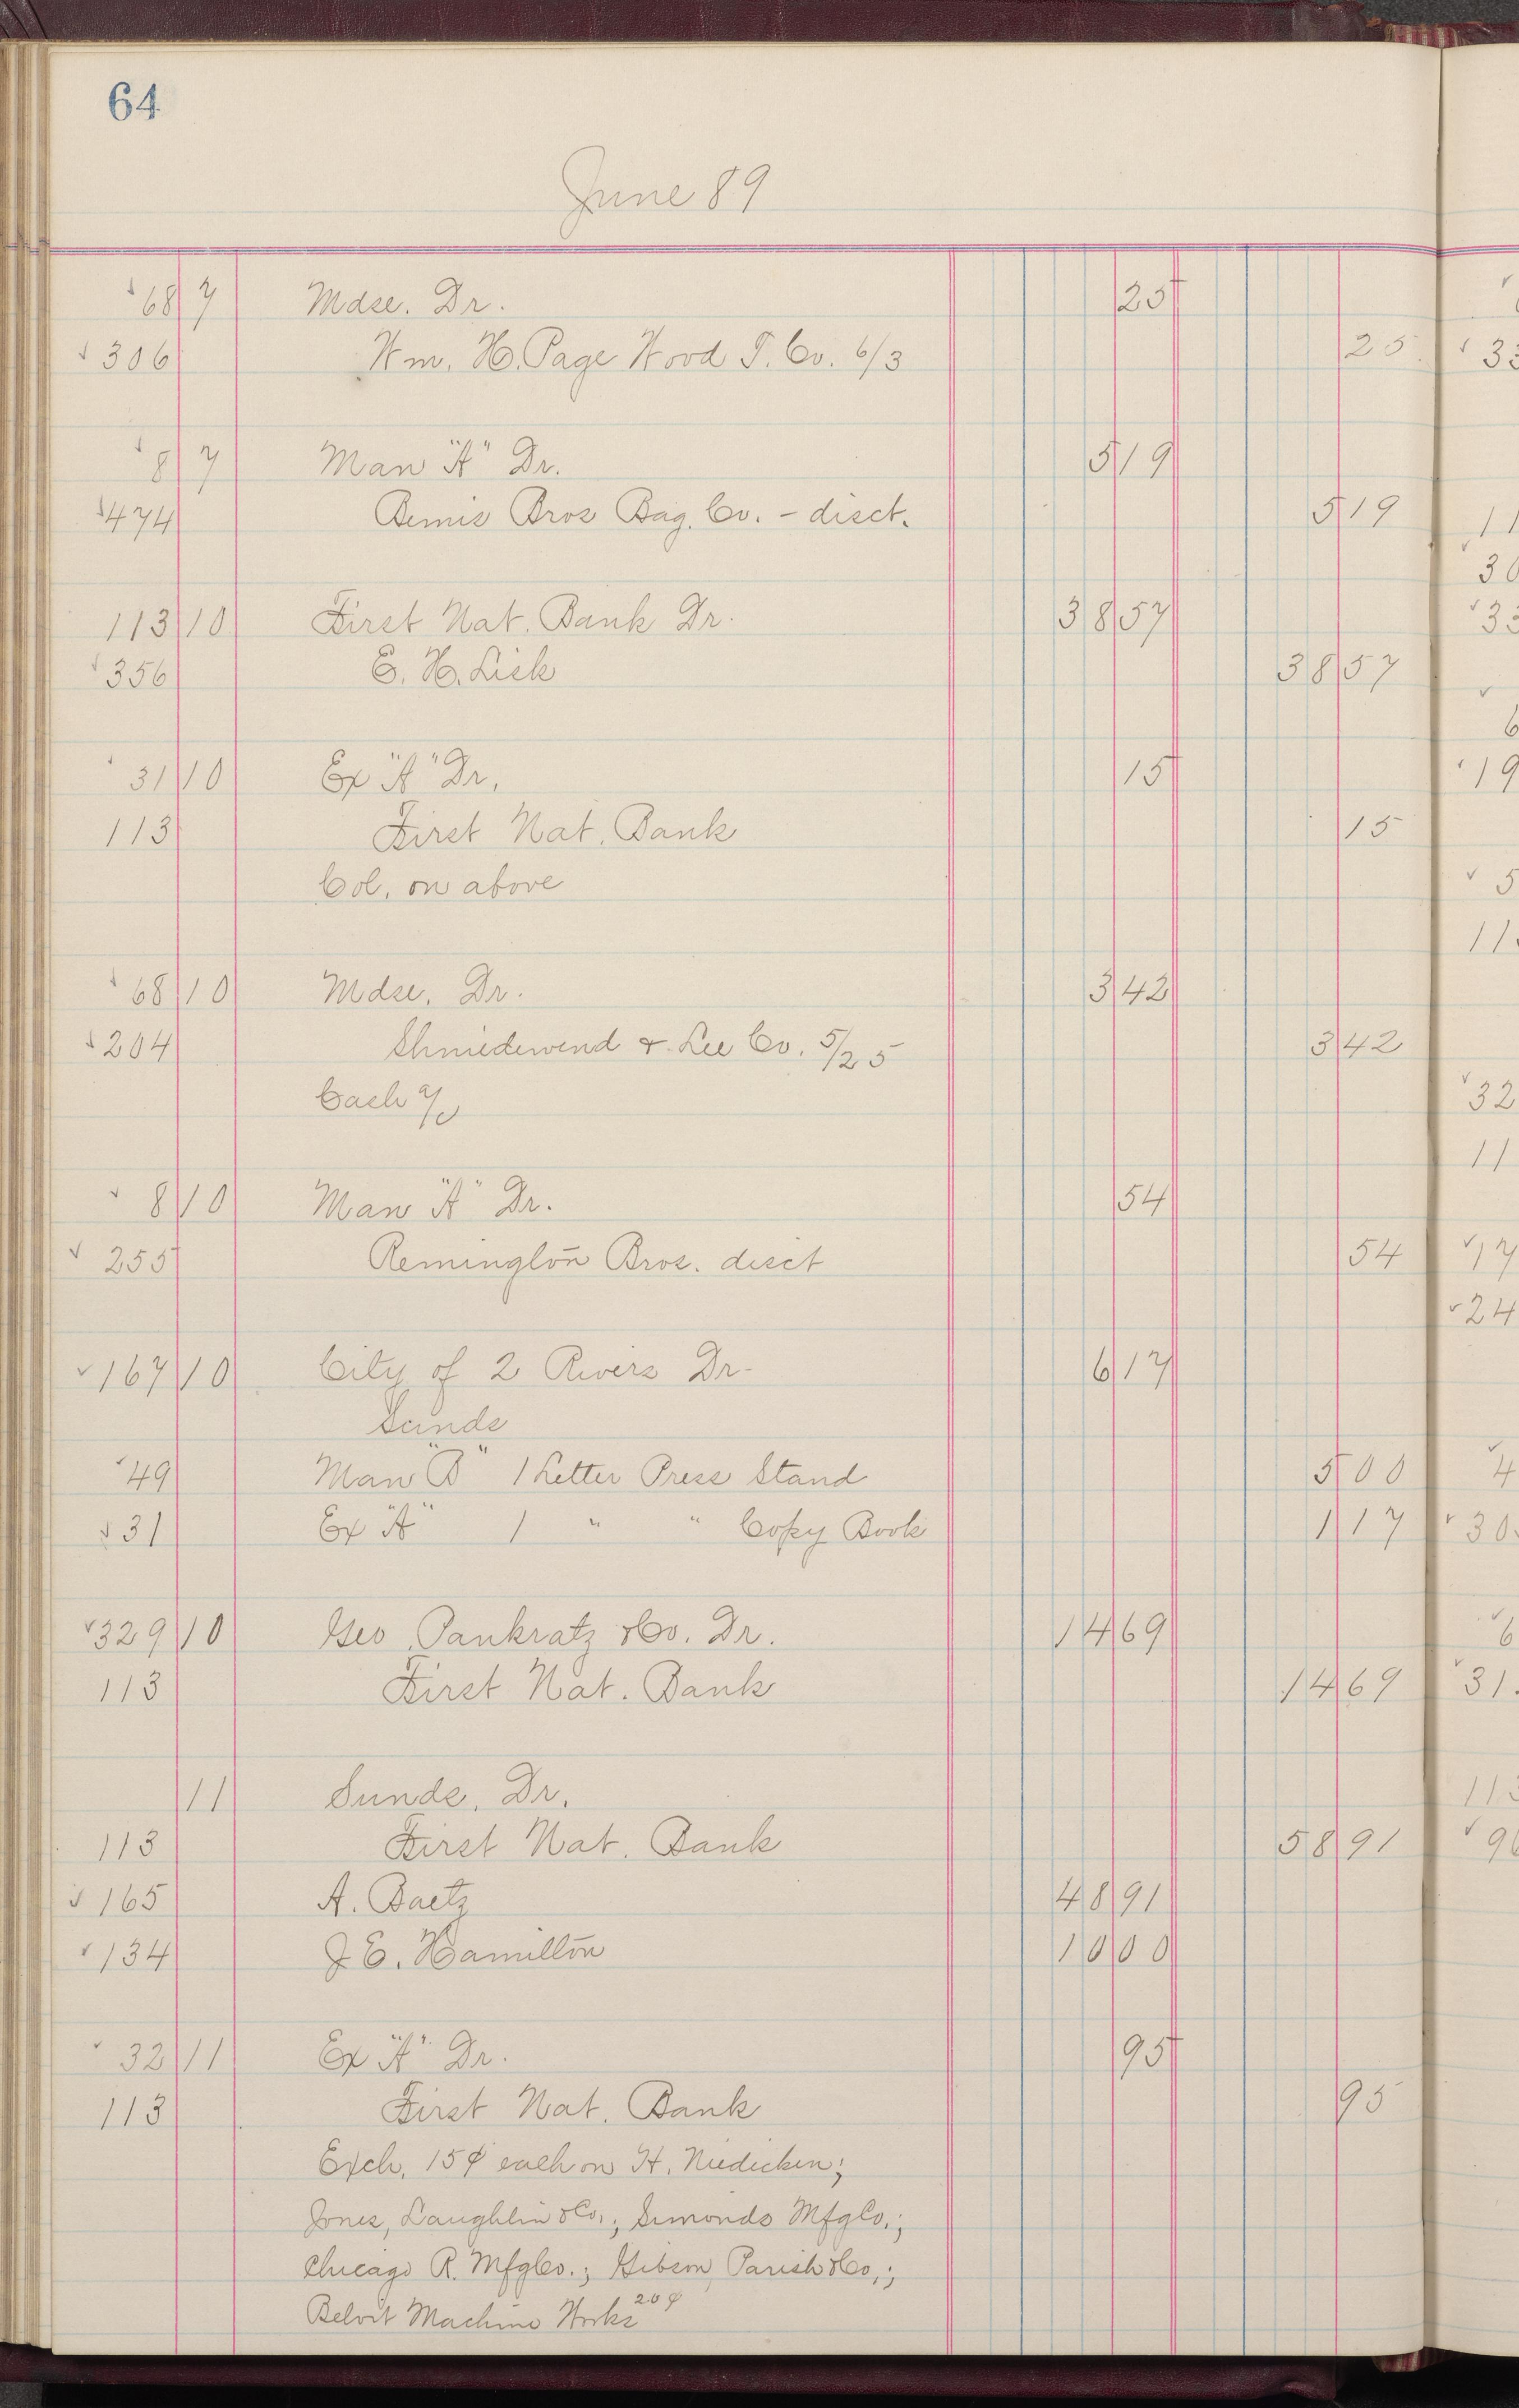 64
June 89
68 7 Mdse. Dr. 25
306 Wm. H. Page Wood T. Co. 6/3 25
8 7 Man "A" Dr. 5 19
474 Bemis Bros Bag. Co. - disct. 5 19
113 10 First Nat. Bank Dr. 38 57
356 E. H. Lisk 38 57
31 10 Ex "A" Dr. 15
113 First Nat. Bank 15
Col. on above
68 10 Mdse. Dr. 3 42
204 Shniedewend & Lee Co. 5/25 3 42
Cash a/c
8 10 Man "A" Dr. 54
255 Remington Bros. disct 54
167 10 City of 2 Rivers Dr. 6 17
Sunds
49 Man "B" 1 Letter Press Stand 5 00
31 Ex "A" 1 " " Copy Book 1 17
329 10 Geo. Pankratz & Co. Dr. 14 69
113 First Nat. Bank 14 69
11 Sunds. Dr.
113 First Nat. Bank 58 91
165 A. Baetz 48 91
134 J E. Hamilton 10 00
32 11 Ex "A" Dr. 95
113 First Nat. Bank 95
Exch. 15¢ each on H. Niedicken;
Jones, Laughlin & Co.; Simonds Mfg Co.;
Chicago R. Mfg Co.; Gibson, Parish & Co.;
Beloit Machine Works 20¢